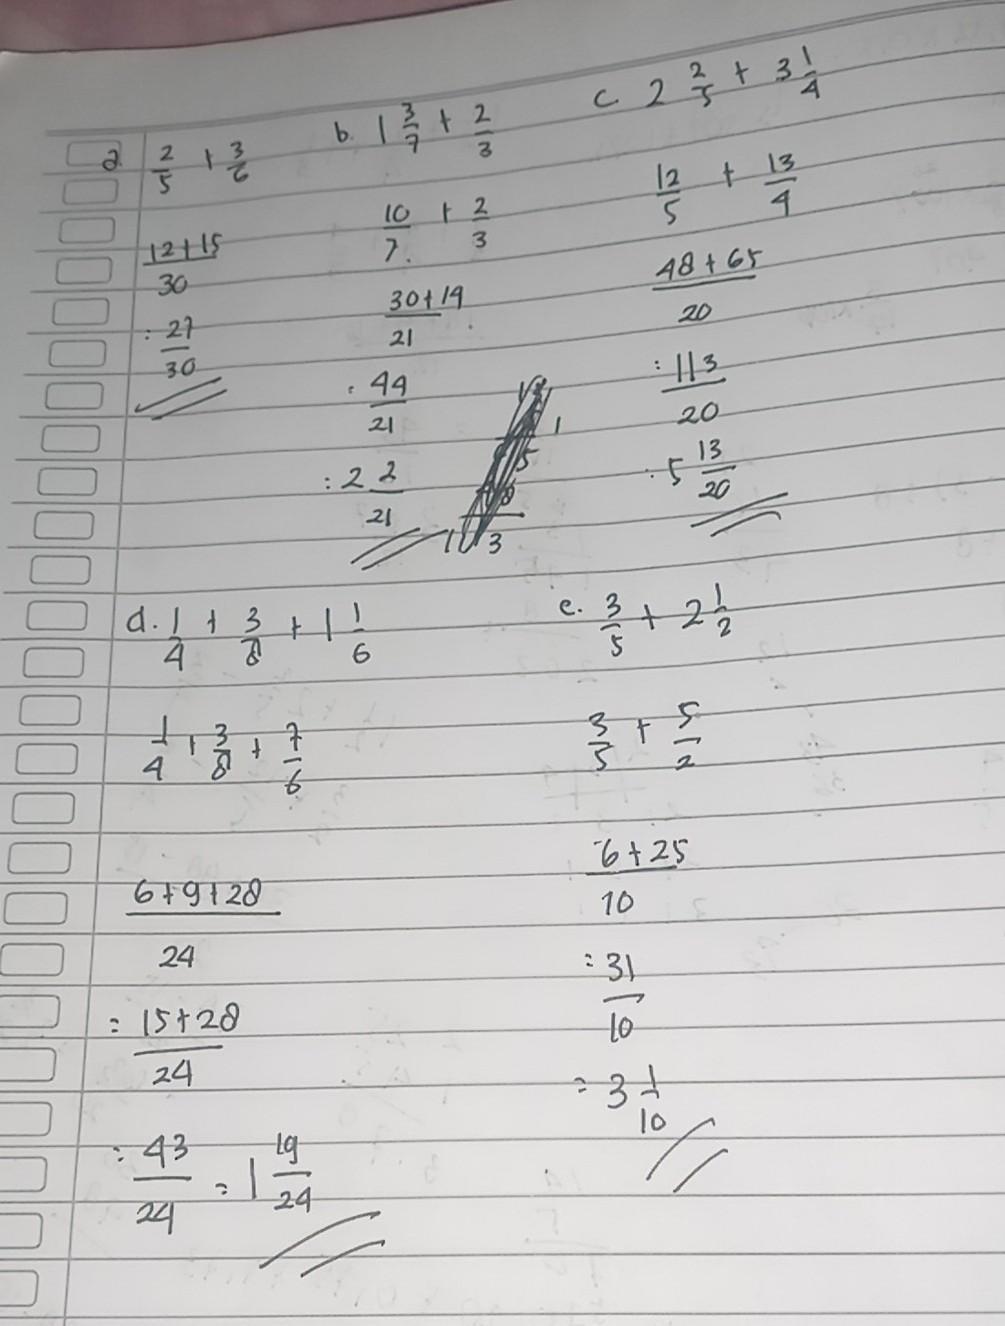 a. 2/5 + 3/6
12+15/30
: 27/30
b. 1 3/7 + 2/3
10/7 + 2/3
30+14/21
: 44/21
: 2 2/21
c 2 2/5 + 3 1/4
12/5 + 13/4
48+65/20
: 113/20
: 5 13/20
d. 1/4 + 3/8 + 1 1/6
1/4 + 3/8 + 7/6
6+9+28/24
= 15+28/24
: 43/24 = 1 19/24
e. 3/5 + 2 1/2
3/5 + 5/2
6+25/10
= 31/10
= 3 1/10